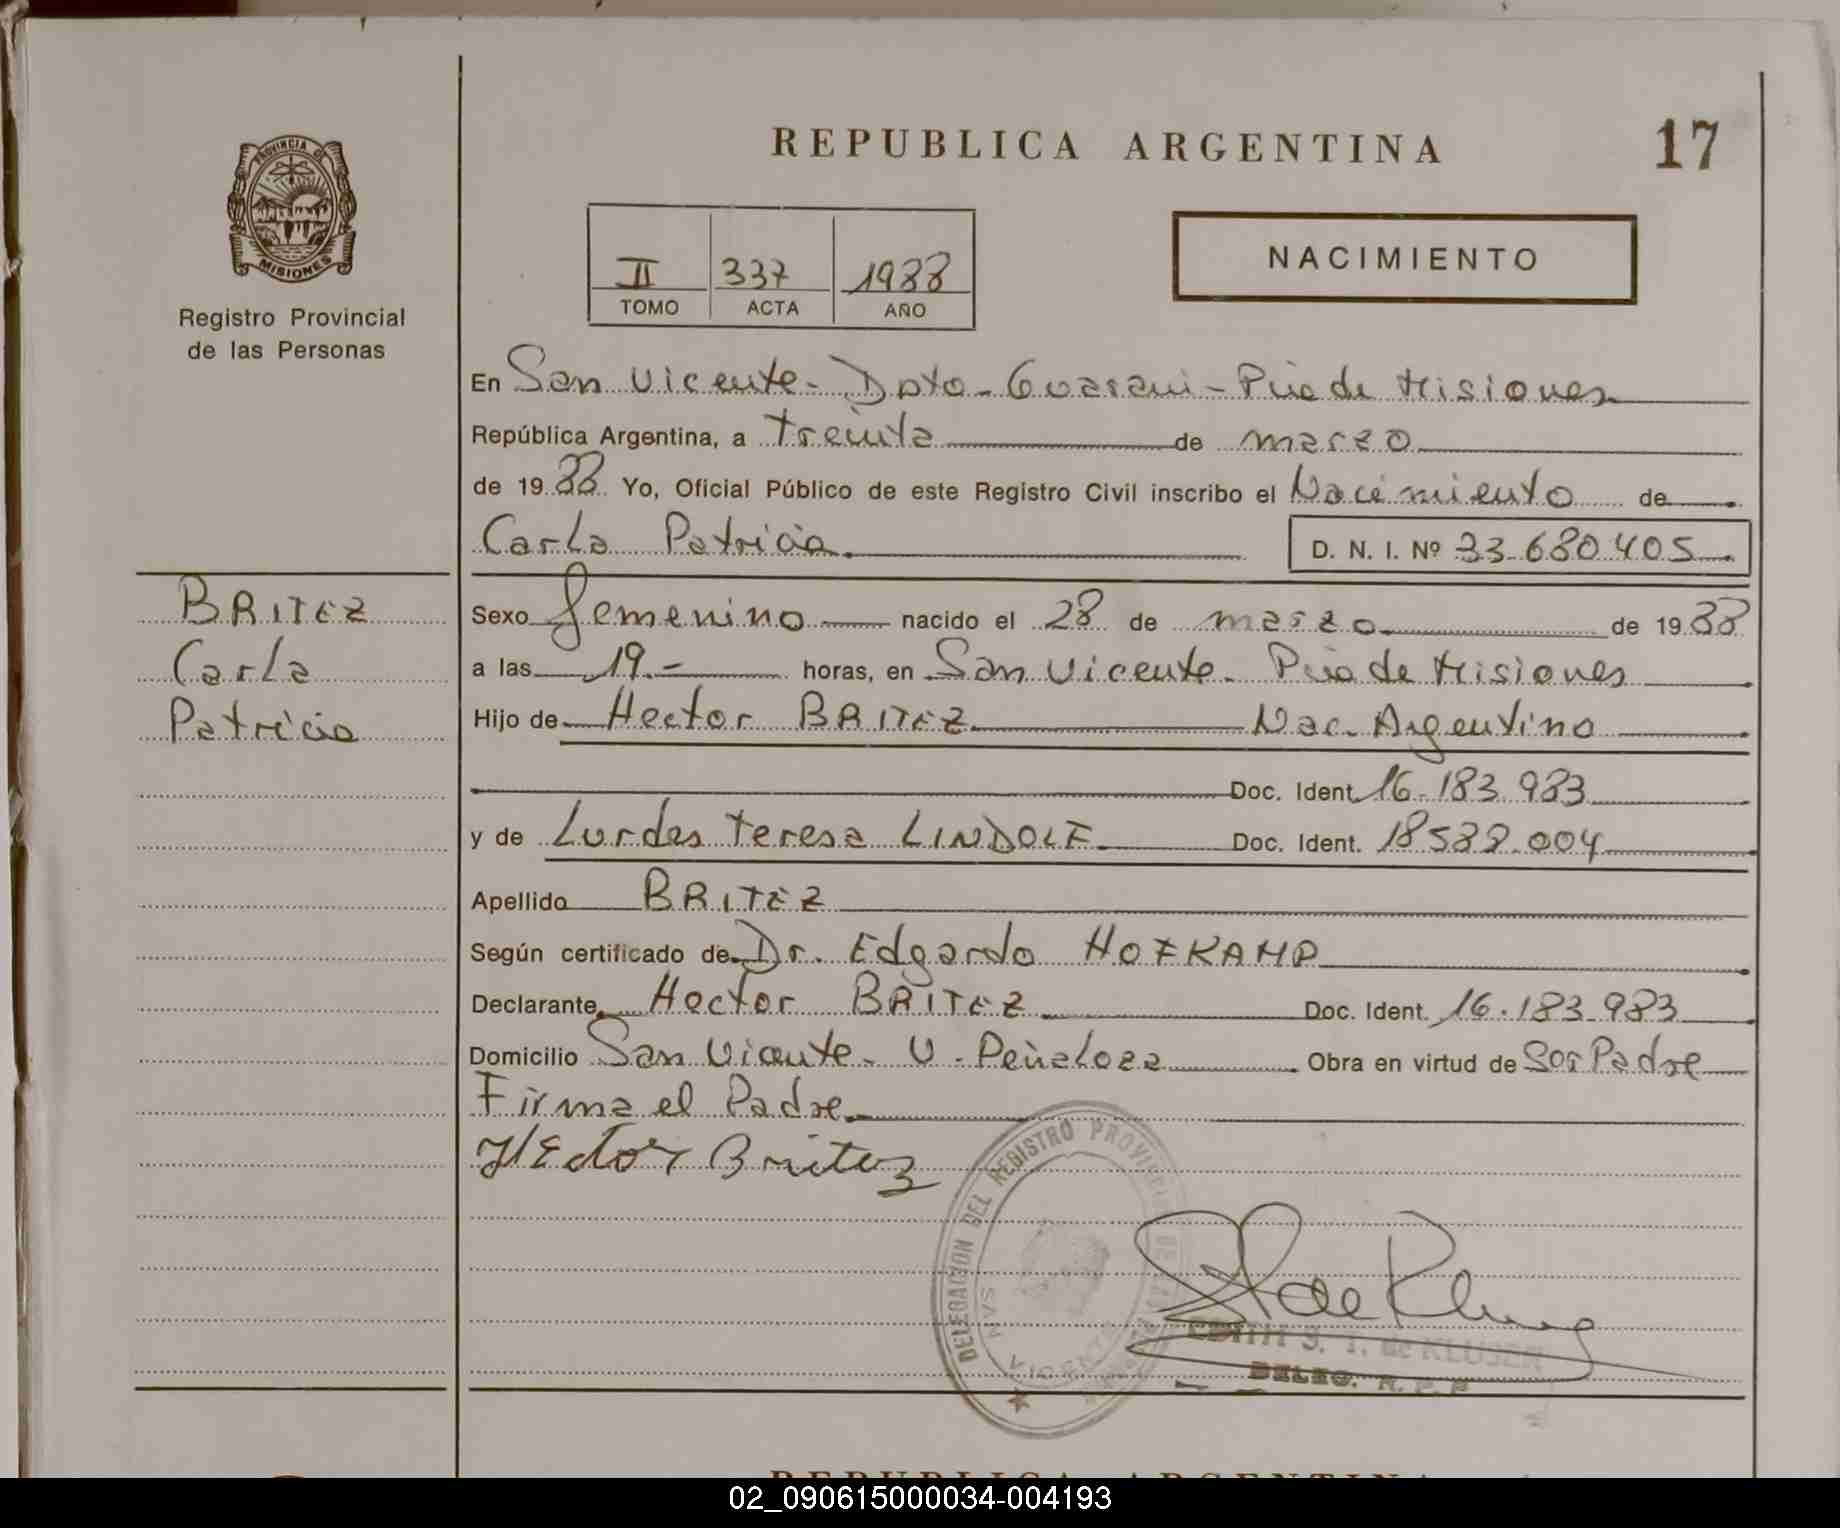 REPUBLICA ARGENTINA
17
PROVINCIA DE
MISIONES
Registro Provincial
de las Personas
II 337 1988
TOMO ACTA AÑO
NACIMIENTO
En San Vicente - Dpto - Guarani - Pcia de Misiones
República Argentina, a Treinta de marzo
de 1988 Yo, Oficial Público de este Registro Civil inscribo el Nacimiento de
Carla Patricia D. N. I. Nº 33.680.405
BRITEZ
Carla
Patricia
Sexo femenino nacido el 28 de marzo de 1988
a las 19.- horas, en San Vicente - Pcia de Misiones
Hijo de Hector BRITEZ Nac. Argentino
Doc. Ident. 16.183.983
y de Lurdes Teresa LINDOLF Doc. Ident. 18.588.004
Apellido BRITEZ
Según certificado de Dr. Edgardo HOFKAMP
Declarante Hector BRITEZ Doc. Ident. 16.183.983
Domicilio San Vicente - V. Peñaloza Obra en virtud de Ser Padre
Firma el Padre
Hector Britez
DELEGACION DEL REGISTRO PROVINCIAL DE LAS
SAN VICENTE
de Kluser
EDITH S. T. de KLUSER
DELEG. R. P. P
REPUBLICA ARGENTINA
02_090615000034-004193